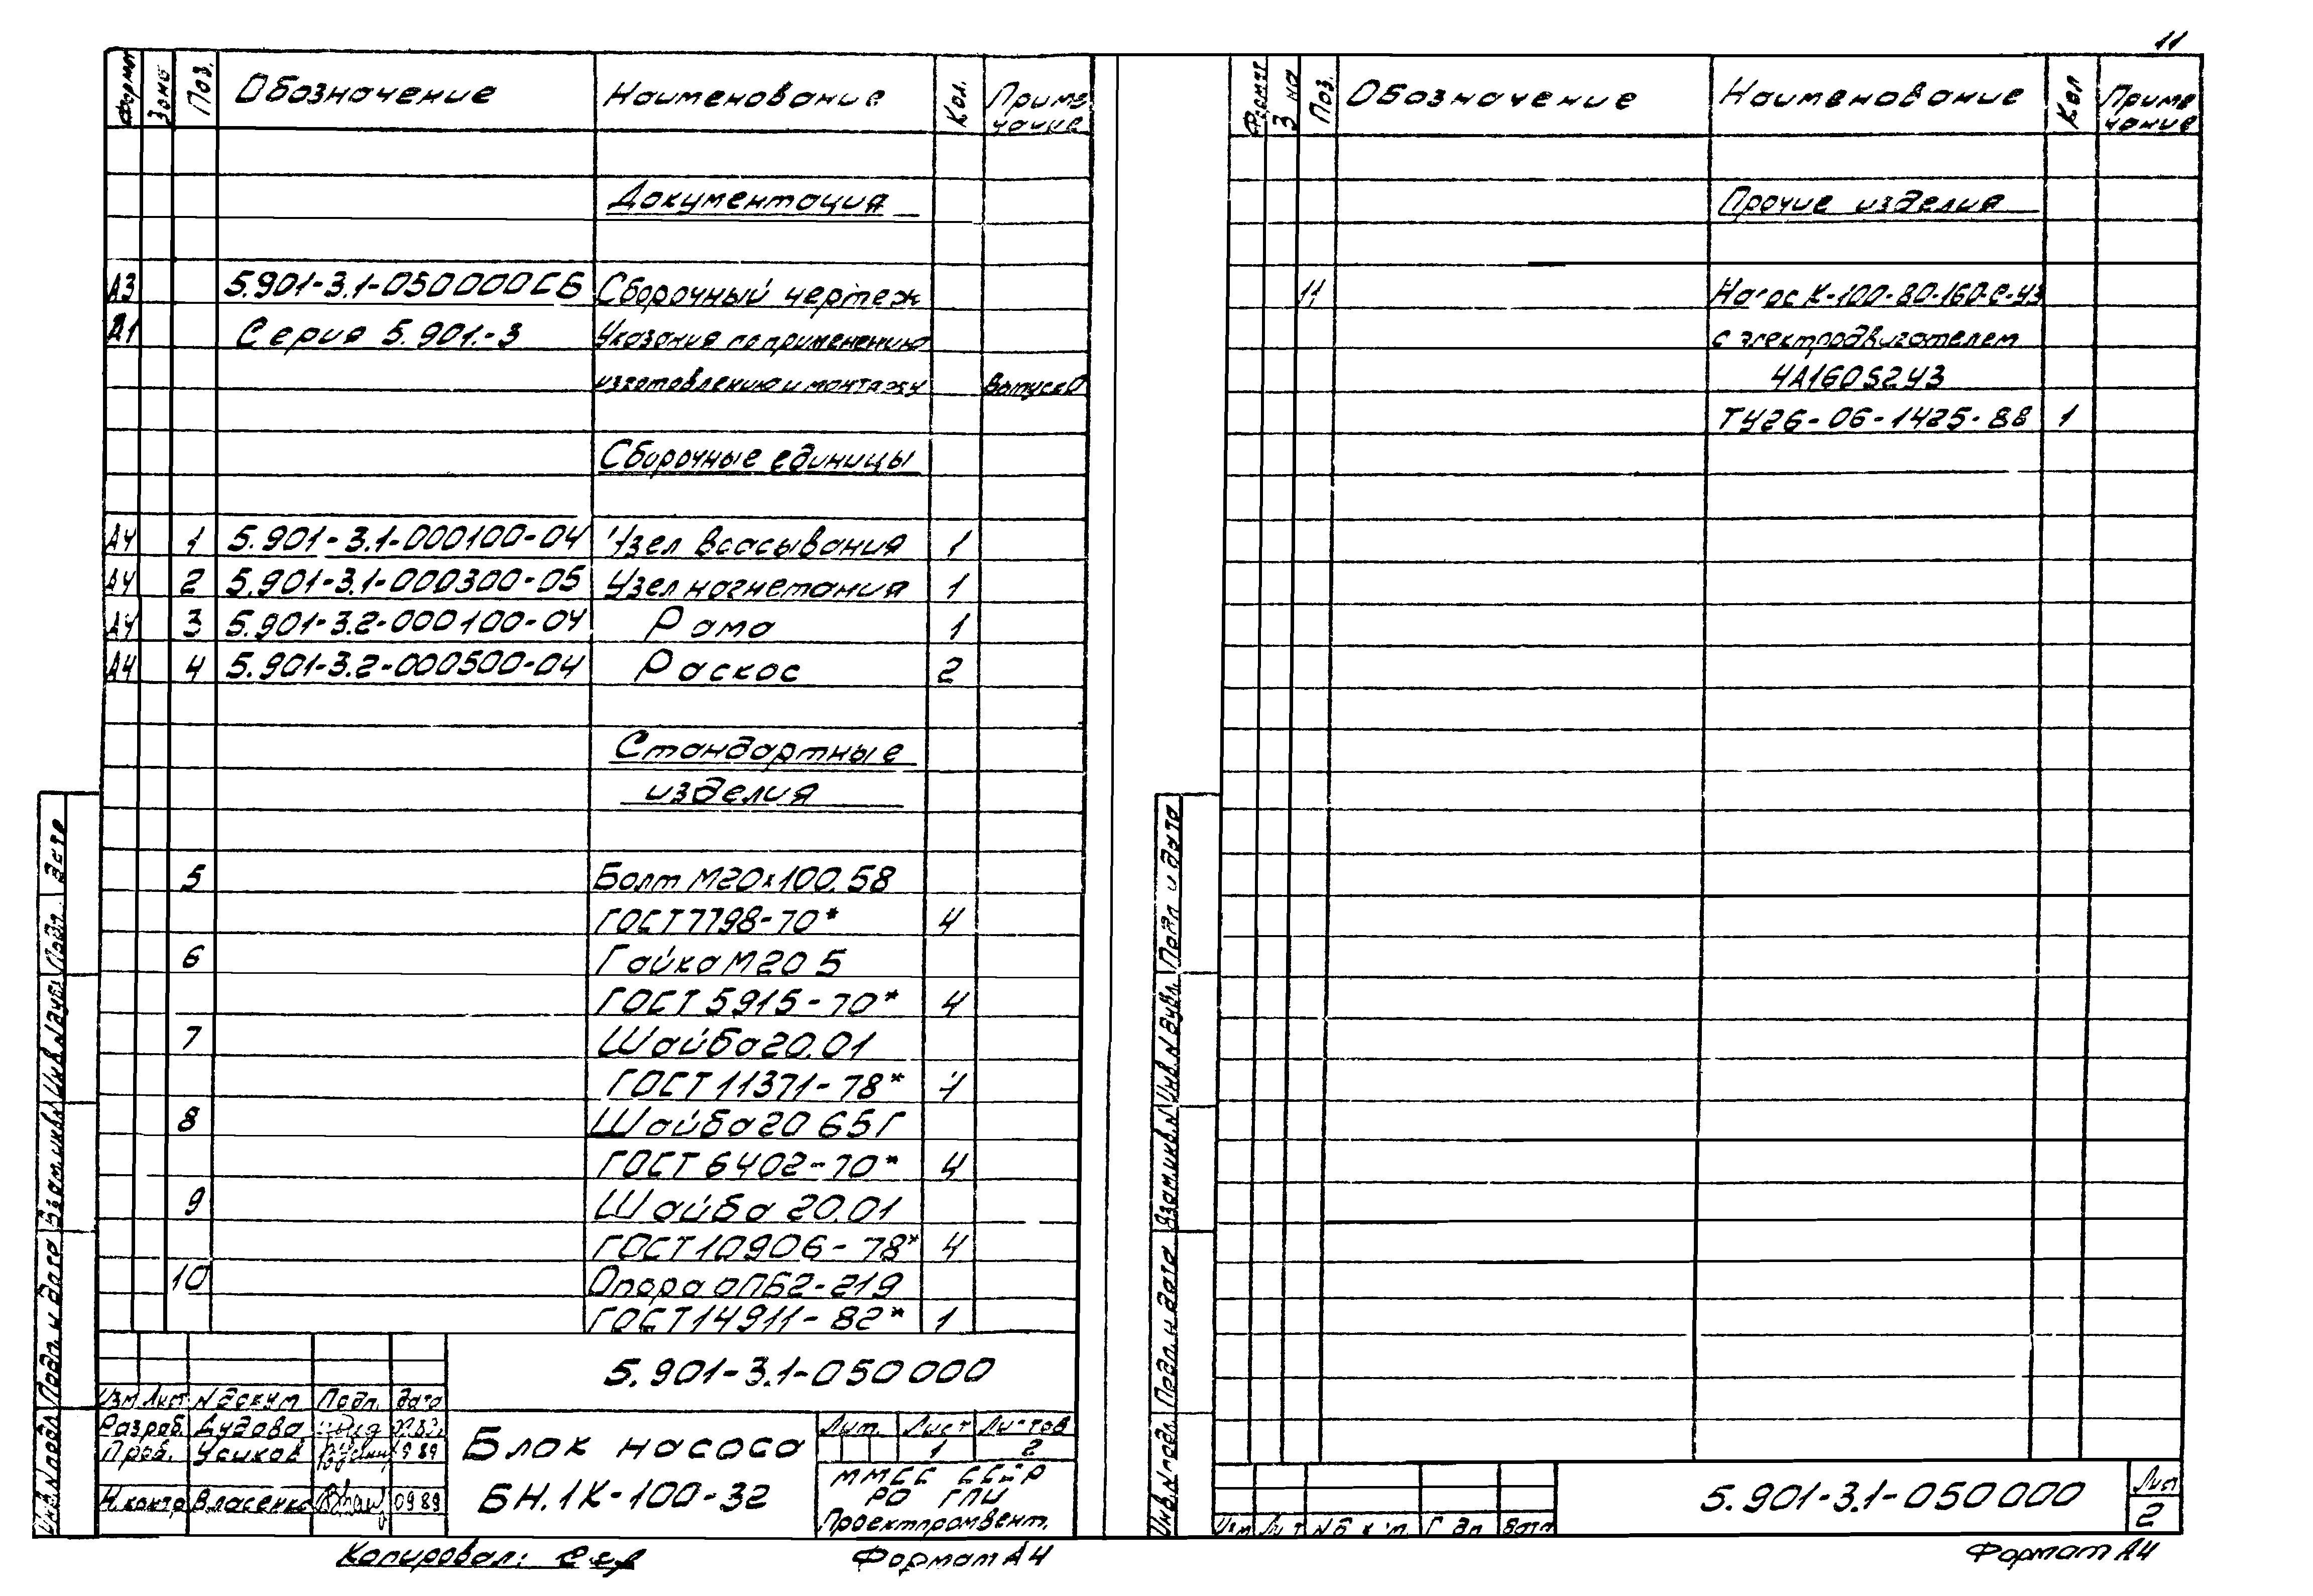 11
Формат Зона Поз. Обозначение Наименование Кол. Приме
чание
Документация
А3 5.901-3.1-050000СБ Сборочный чертеж
А1 Серия 5.901-3 Указания по применению
изготовлению и монтажу Выпуск 0
Сборочные единицы
А4 1 5.901-3.1-000100-04 Узел всасывания 1
А4 2 5.901-3.1-000300-05 Узел нагнетания 1
А4 3 5.901-3.2-000100-04 Рама 1
А4 4 5.901-3.2-000500-04 Раскос 2
Стандартные
изделия
5 Болт М20х100.58
ГОСТ 7798-70* 4
6 Гайка М20 5
ГОСТ 5915-70* 4
7 Шайба 20.01
ГОСТ 11371-78* 4
8 Шайба 20 65Г
ГОСТ 6402-70* 4
9 Шайба 20.01
ГОСТ 10906-78* 4
10 Опора ОПБ2-219
ГОСТ 14911-82* 1
Инв.N подл. Подп. и дата Взам.инв.N Инв.N дубл. Подп. дата
5.901-3.1-050000
Изм Лист N докум Подп. дата
Разраб. Дудова
Пров. Усиков 9 89
Н.контр Власенко 09 89
Блок насоса
БН.1К-100-32
Лит. Лист Листов
1 2
ММСС СССР
РО ГПИ
Проектпромвент.
Копировал:
Формат А4
Формат Поз. Обозначение Наименование Кол Приме
чание
Прочие изделия
11 Насос К-100-80-160-С-У3
с электродвигателем
4А160S2У3
ТУ26-06-1425-88 1
Инв.N подл. Подп. и дата Взам.инв.N Инв.N дубл. Подп и дата
Изм Лист дата
5.901-3.1-050000
Лист
2
Формат А4